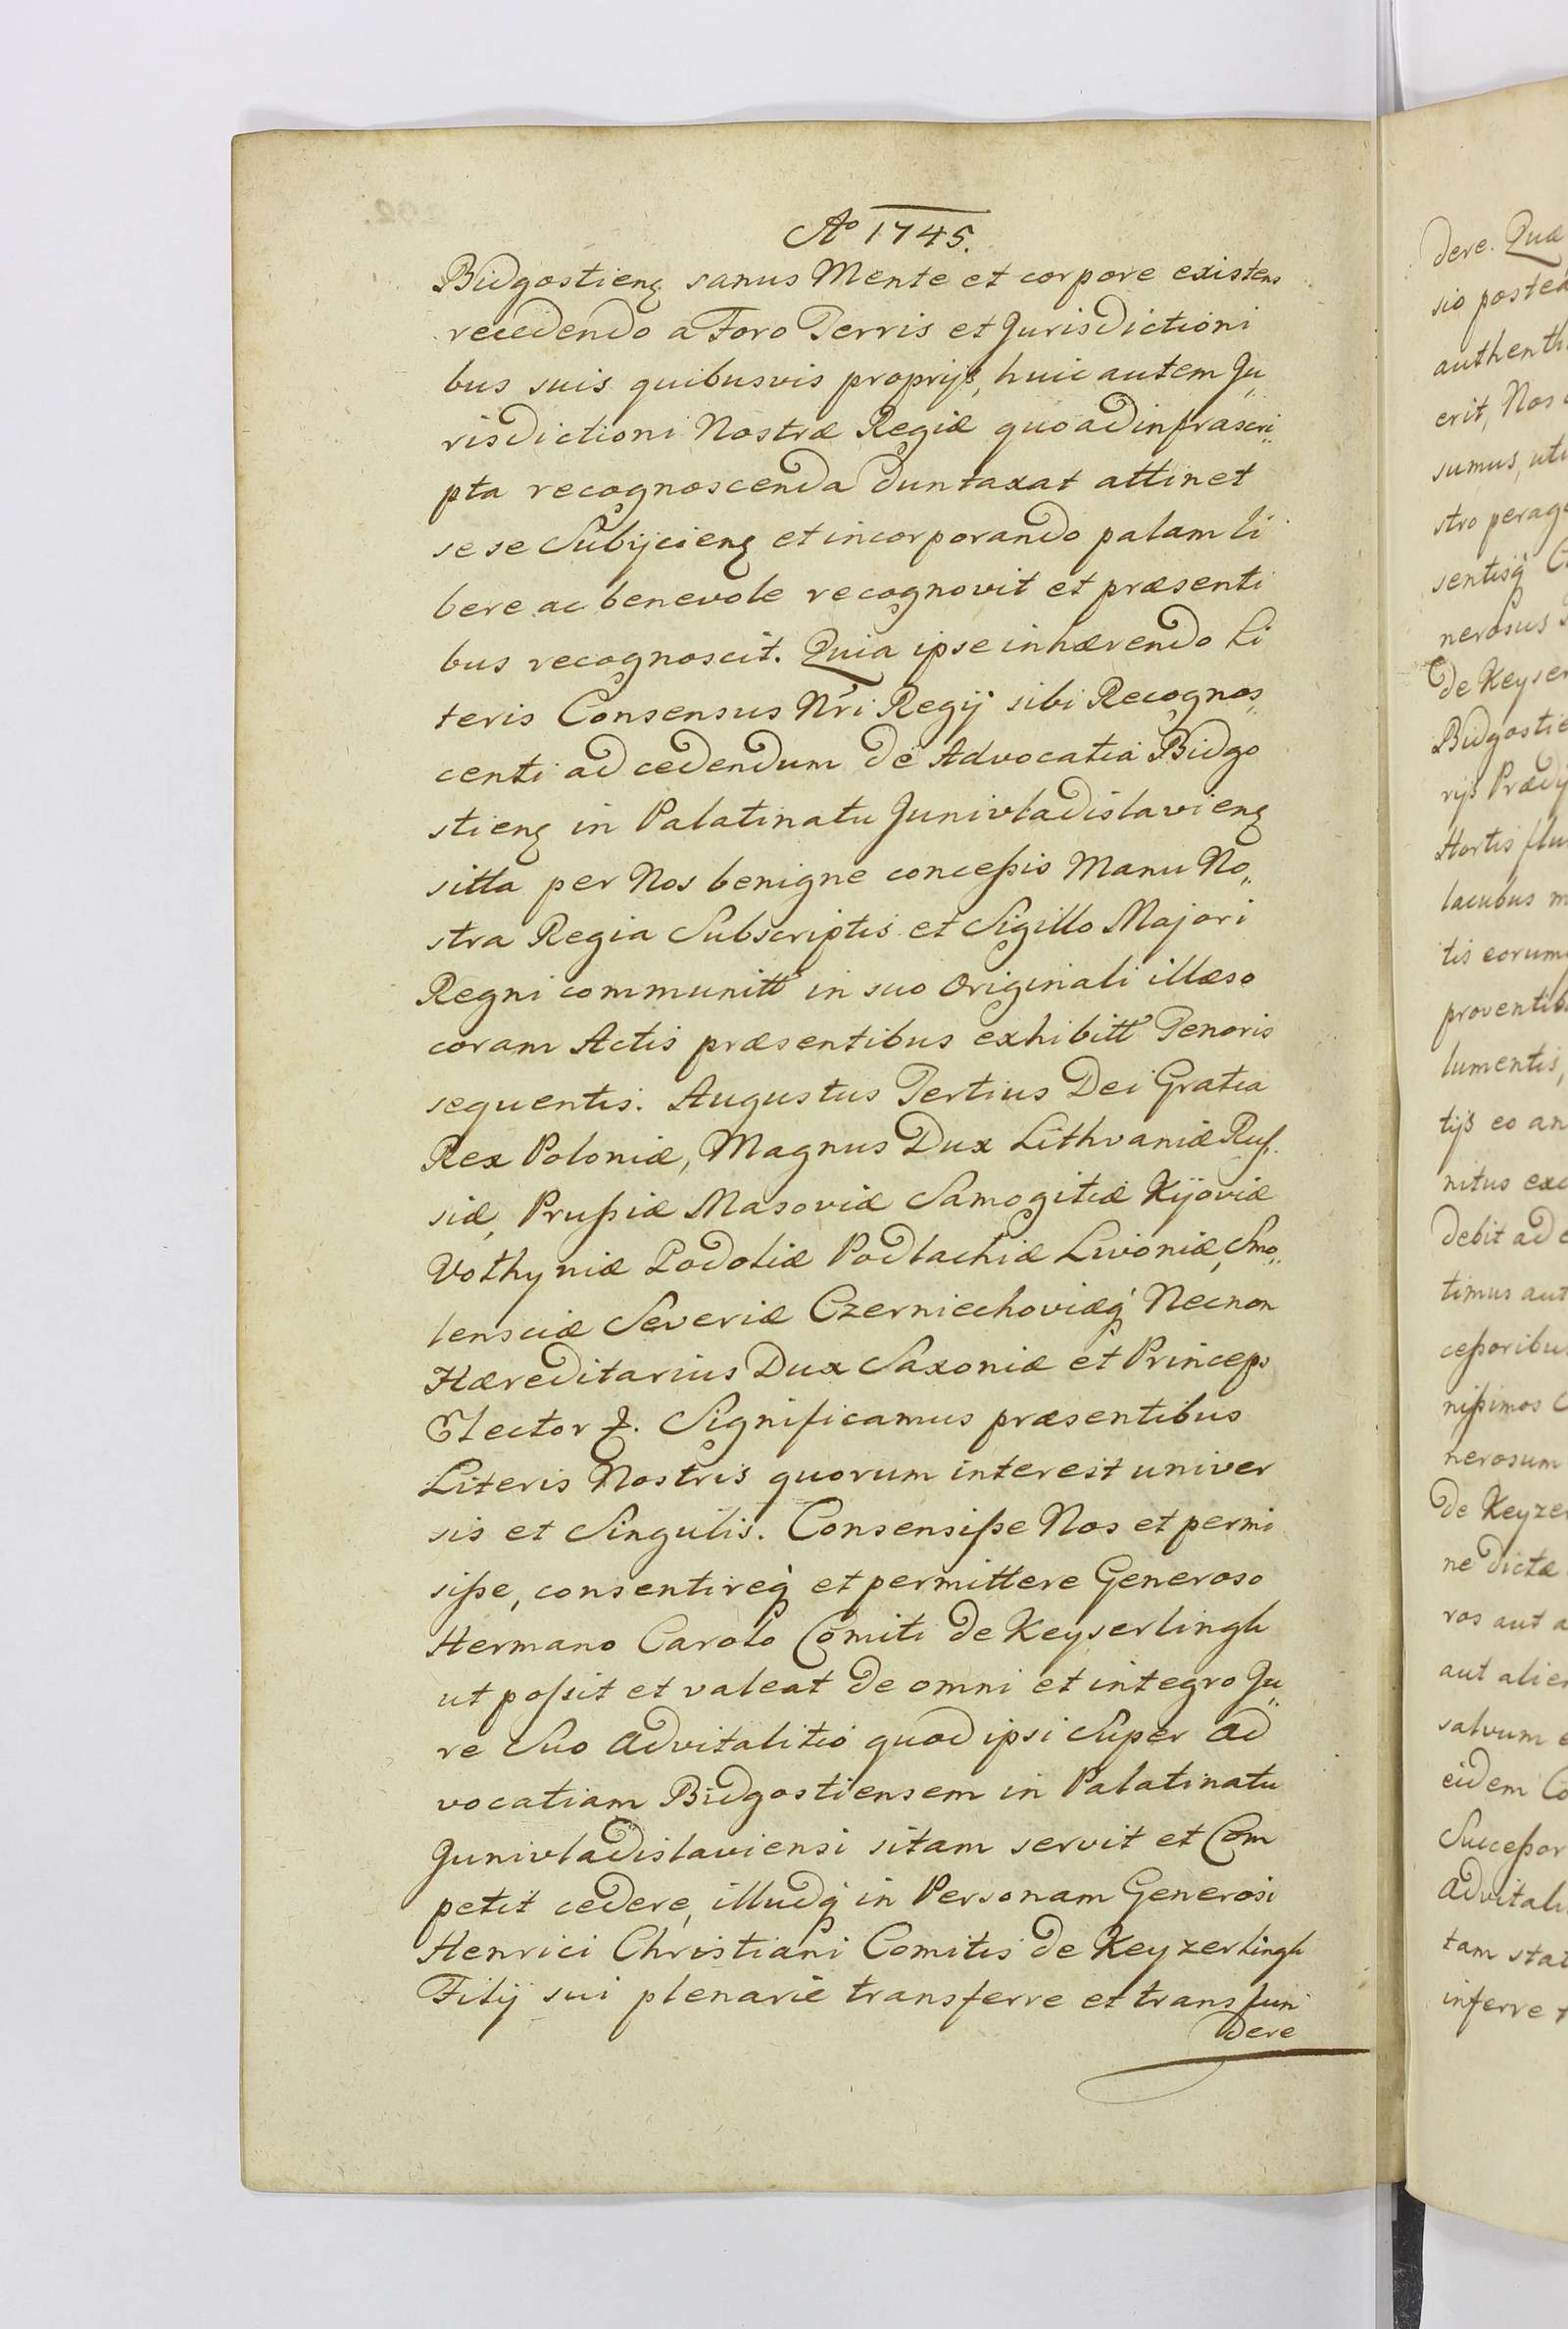 Aº 1745.
Bidgostienȝ sanus Mente et corpore existens
recedendo a Foro Terris et Jurisdictioni
bus suis quibusvis proprijs, huic autem Ju„
risdictioni Nostræ Regiæ quo ad infrascri„
pta recognoscenda duntaxat attinet
se se Subijcienȝ et incorporando palam li
bere ac benevole recognovit et præsenti
bus recognoscit. Quia ipse inhærendo Li
teris Consensus Nr̃i Regij sibi Recognos„
centi ad cedendum de Advocatia Bidgo
stienȝ in Palatinatu Junivladislavienȝ
sitta per Nos benigne conceſsis Manu No„
stra Regia Subscriptis et Sigillo Majori
Regni communitt in suo Originali illæso
coram Actis præsentibus exhibitt Tenoris
sequentis. Augustus Tertius Dei Gratia
Rex Poloniæ, Magnus Dux Lithvaniæ Ruſ„
siæ, Pruſsiæ Masoviæ Samogitiæ Kijoviæ
Volhyniæ Podoliæ Podlachiæ Livoniæ, Smo„
lensciæ Severiæ Czerniechoviæq́ Necnon
Hæreditarius Dux Saxoniæ et Princeps
Elector ꝛ. Significamus præsentibus
Literis Nostris quorum interest univer
sis et Singulis. Consensiſse Nos et permi
siſse, consentireq́ et permittere Generoso
Hermano Carolo Comiti de Keyserlingk
ut poſsit et valeat de omni et integro Ju„
re Suo Advitalitio quod ipsi Super Ad
vocatiam Bidgostiensem in Palatinatu
Junivladislaviensi sitam servit et Com
petit cedere, illudq́ in Personam Generosi
Henrici Christiani Comitis de Keyzerlingk
Filij sui plenarie transferre et transfun
dere
dere. Quæ
sio postea
erit, Nos
sumus, uti
sentisq́
nerosus
de Keyser
Bidgostie
rijs Prædij
Hortis flu
lacubus m
tis eorum
proventib
lumentis,
tijs eo an
nitus exc
debit ad e
timus aut
ceſsoribu
niſsimos C
nerosum
de Keyzer
ne dictæ
ros aut a
aut alie
salvum e
eidem Co
Succeſsor
Advitali
tam stat
inferre